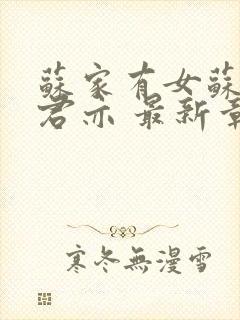 蘇家有女蘇
君亦 最新章
寒冬無漫雪